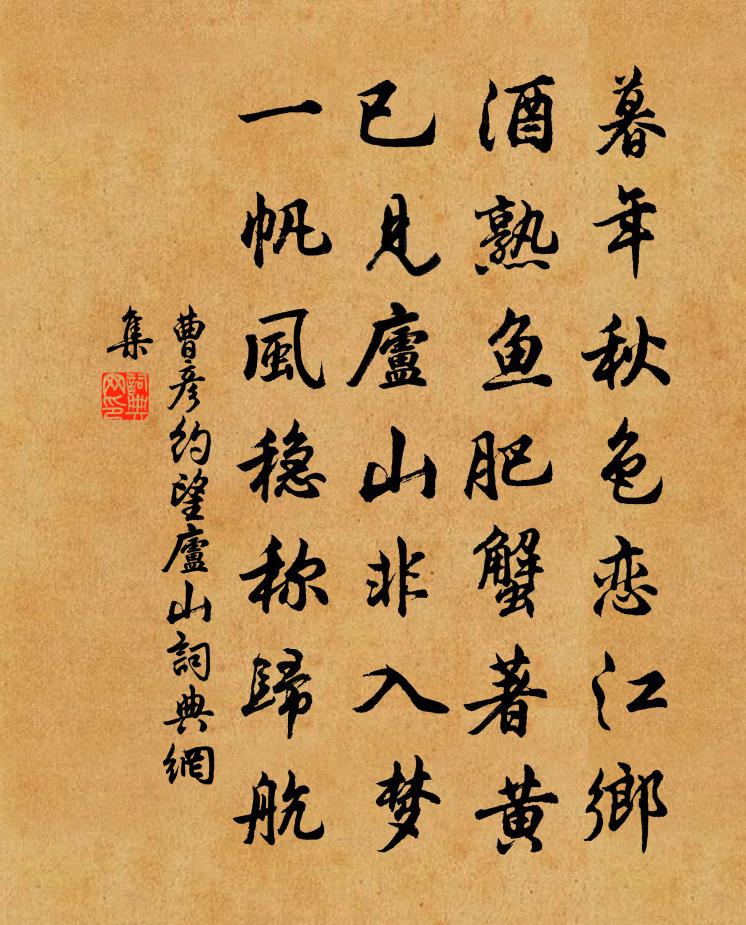 暮年秋色恋江鄉
酒熟鱼肥蟹著黄
已見廬山非入梦
一帆風稳称歸航
曹彦约望廬山詞典網
集
詞典網印